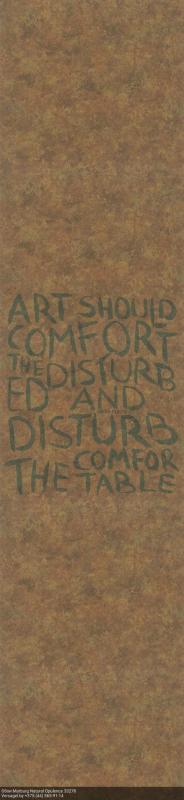 ART SHOULD
COMFORT
THE DISTURB
ED AND
DISTURB
THE COMFOR
TABLE
Обои Marburg Natural Opulence 33278
Versagel.by +375 (44) 565-91-14